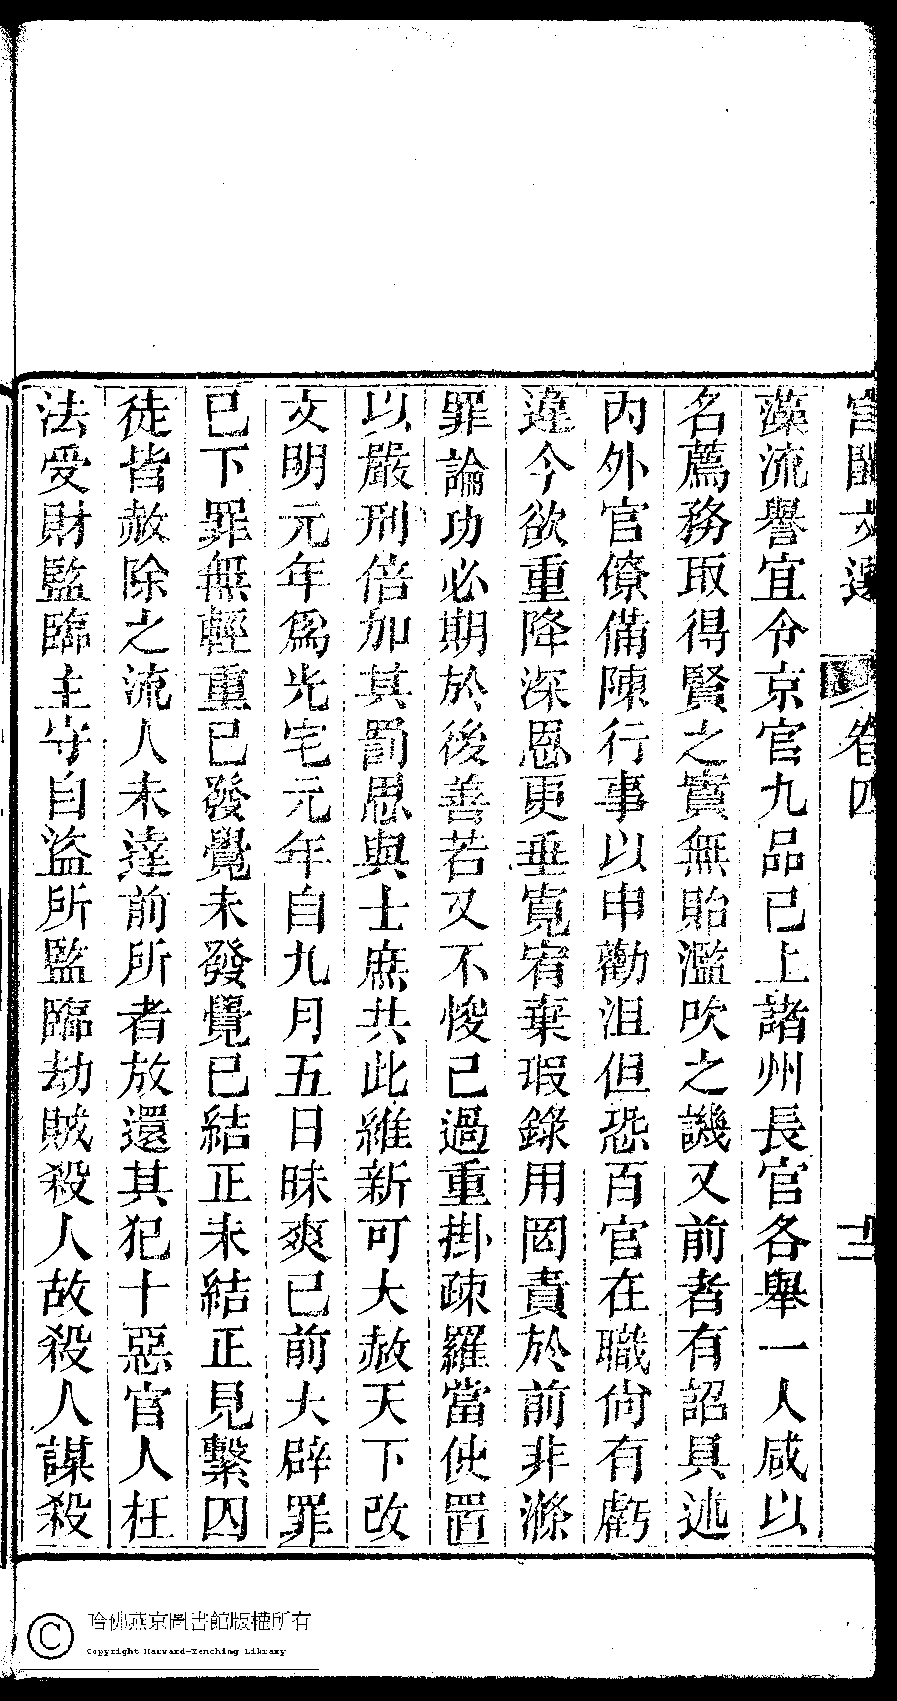 宮閨文選 卷四 十二
藻流譽宜令京官九品已上諸州長官各舉一人咸以
名薦務取得賢之實無貽濫吹之譏又前者有詔具述
內外官僚備陳行事以申勸沮但恐百官在職尙有虧
違今欲重降深恩更垂寬宥棄瑕錄用罔責於前非滌
罪論功必期於後善若又不悛已過重掛疎羅當使置
以嚴刑倍加其罰思與士庶共此維新可大赦天下改
文明元年爲光宅元年自九月五日昧爽已前大辟罪
已下罪無輕重已發覺未發覺已結正未結正見繫囚
徒皆赦除之流人未達前所者放還其犯十惡官人枉
法受財監臨主守自盜所監臨劫賊殺人故殺人謀殺
哈佛燕京圖書館版權所有
Copyright Harvard-Yenching Library